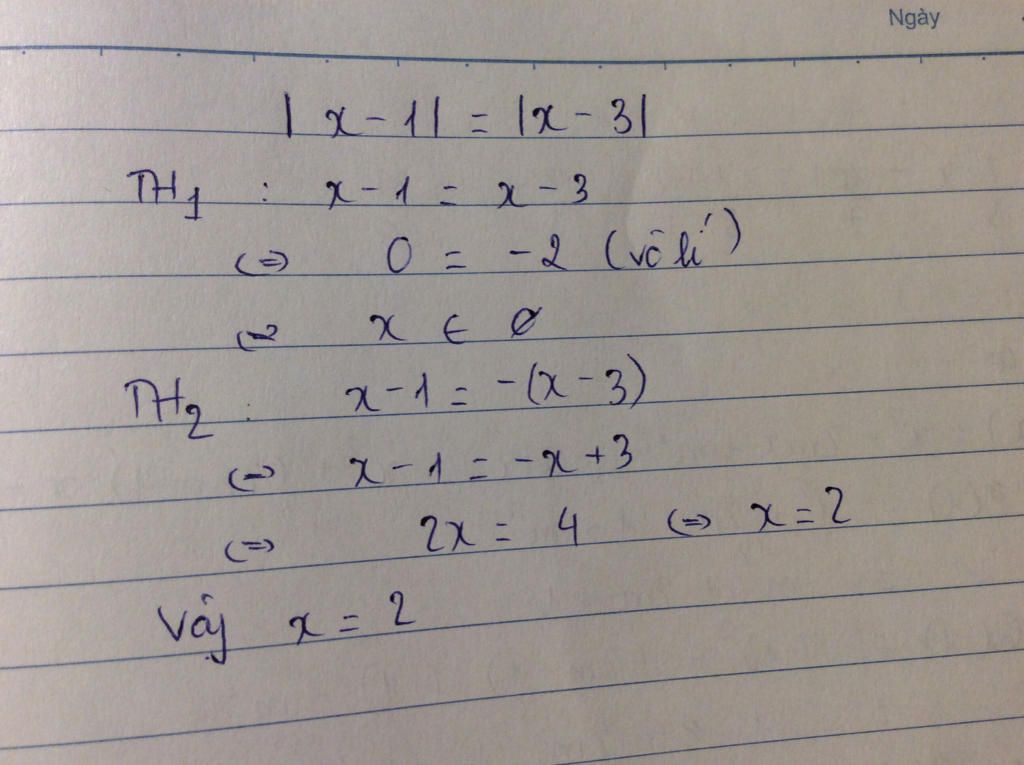 Ngày
|x - 1| = |x - 3|
TH1 : x - 1 = x - 3
<=> 0 = -2 (vô lí)
<=> x ∈ ∅
TH2 : x - 1 = -(x - 3)
<=> x - 1 = -x + 3
<=> 2x = 4 <=> x = 2
Vậy x = 2